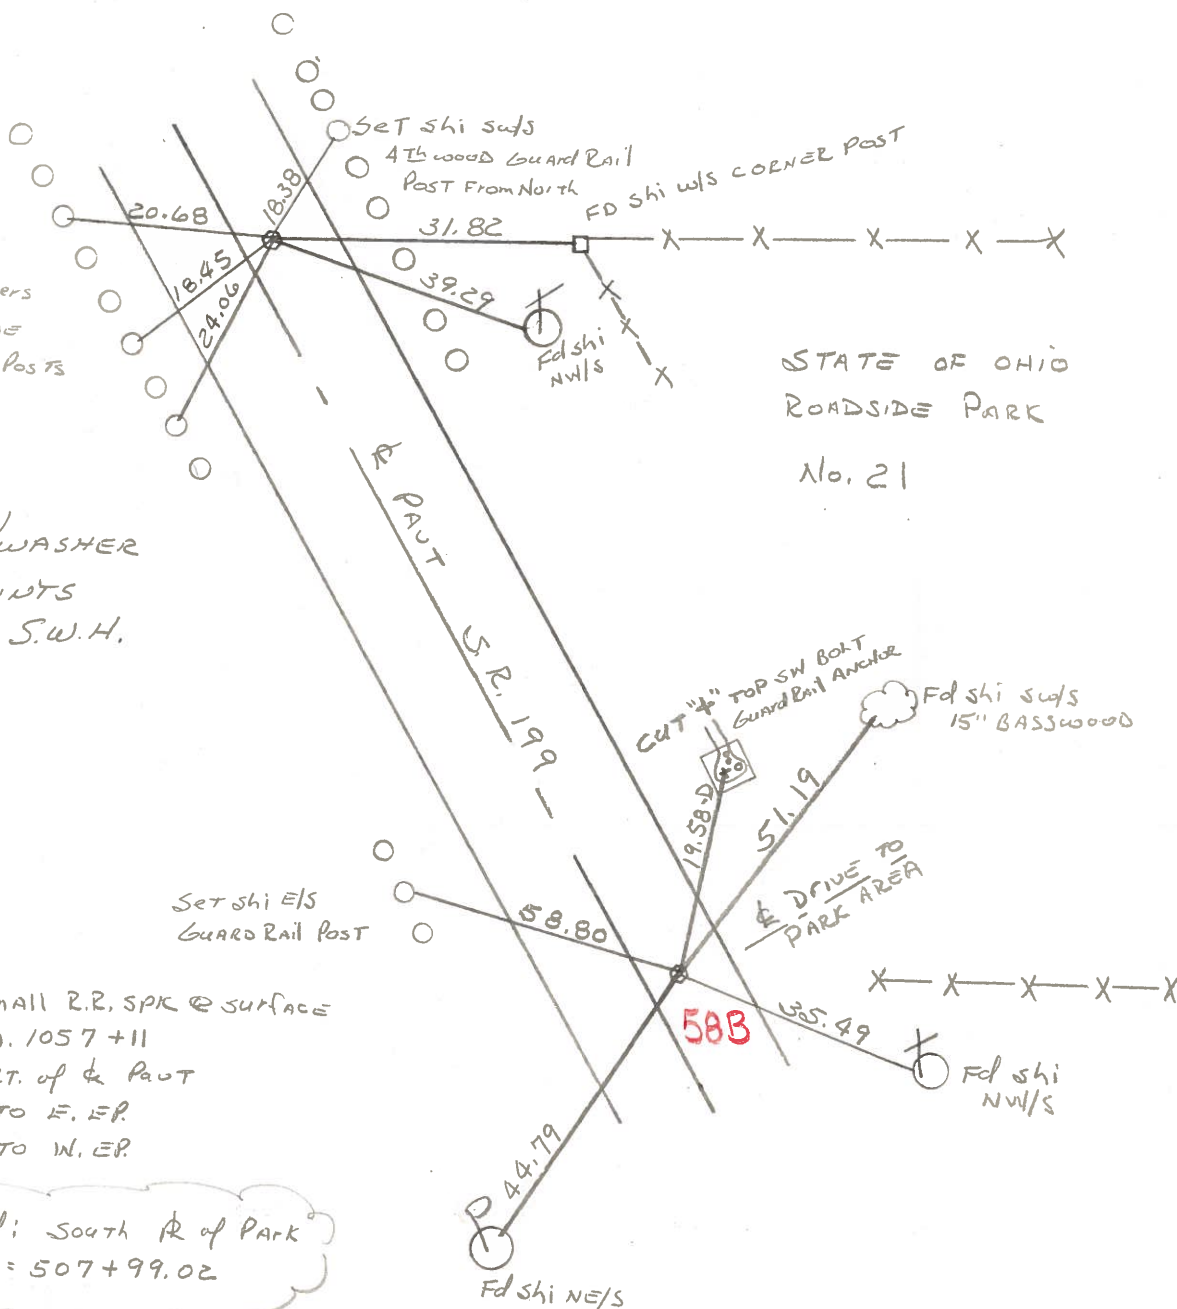 Set shi sw/s
4Th wood Guard Rail
Post From North
FD shi w/s CORNER POST
18.38
20.68
31.82
18.45
24.06
39.29
Fd shi
NW/S
ers
Posts
STATE OF OHIO
ROADSIDE PARK
No. 21
WASHER
S.W.H.
℄ PAVT
S.R. 199
CUT "+" TOP SW BOLT
Guard Rail ANCHOR
Fd shi sw/s
15" BASSWOOD
19.58-D
51.19
℄ DRIVE TO
PARK AREA
Set shi E/S
GUARD Rail POST
58.80
58B
35.49
Fd shi
NW/S
mall R.R. SPK @ surface
. 1057+11
RT. of ℄ PavT
TO E. EP.
TO W. EP.
44.79
: South ⅊ of Park
= 507+99.02
Fd shi NE/S